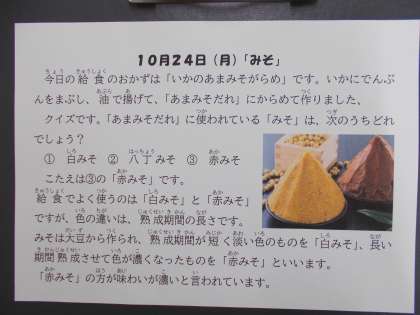 10月24日（月）「みそ」
今日の給食のおかずは「いかのあまみそがらめ」です。いかにでんぷ
んをまぶし、油で揚げて、「あまみそだれ」にからめて作りました、
クイズです。「あまみそだれ」に使われている「みそ」は、次のうちどれ
でしょう？
① 白みそ ② 八丁みそ ③ 赤みそ
こたえは③の「赤みそ」です。
給食でよく使うのは「白みそ」と「赤みそ」
ですが、色の違いは、熟成期間の長さです。
みそは大豆から作られ、熟成期間が短く淡い色のものを「白みそ」、長い
期間熟成させて色が濃くなったものを「赤みそ」といいます。
「赤みそ」の方が味わいが濃いと言われています。